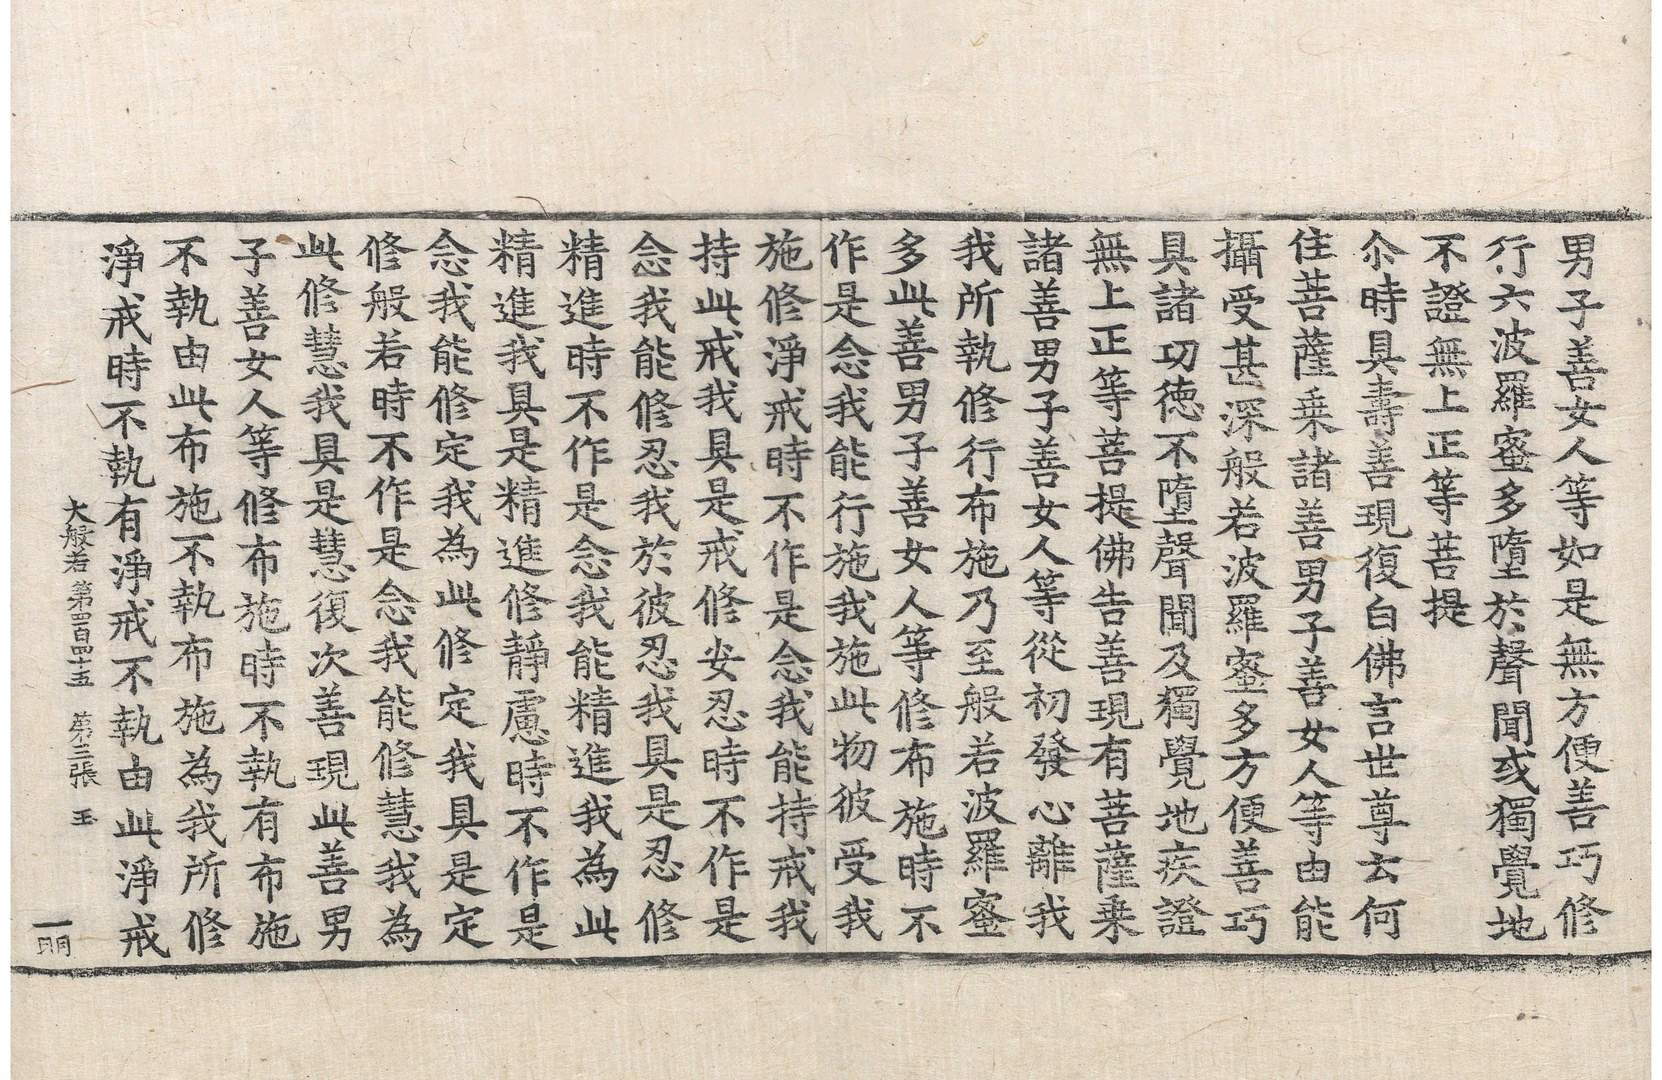 男子善女人等如是無方便善巧修
行六波羅蜜多墮於聲聞或獨覺地
不證無上正等菩提
尒時具壽善現復白佛言世尊云何
住菩薩乗諸善男子善女人等由能
攝受甚深般若波羅蜜多方便善巧
具諸功徳不墮聲聞及獨覺地疾證
無上正等菩提佛告善現有菩薩乗
諸善男子善女人等從初發心離我
我所執修行布施乃至般若波羅蜜
多此善男子善女人等修布施時不
作是念我能行施我施此物彼受我
施修淨戒時不作是念我能持戒我
持此戒我具是戒修安忍時不作是
念我能修忍我於彼忍我具是忍修
精進時不作是念我能精進我為此
精進我具是精進修靜慮時不作是
念我能修定我為此修定我具是定
修般若時不作是念我能修慧我為
此修慧我具是慧復次善現此善男
子善女人等修布施時不執有布施
不執由此布施不執布施為我所修
淨戒時不執有淨戒不執由此淨戒
大般若第四百四十五 第三張 玉
一明